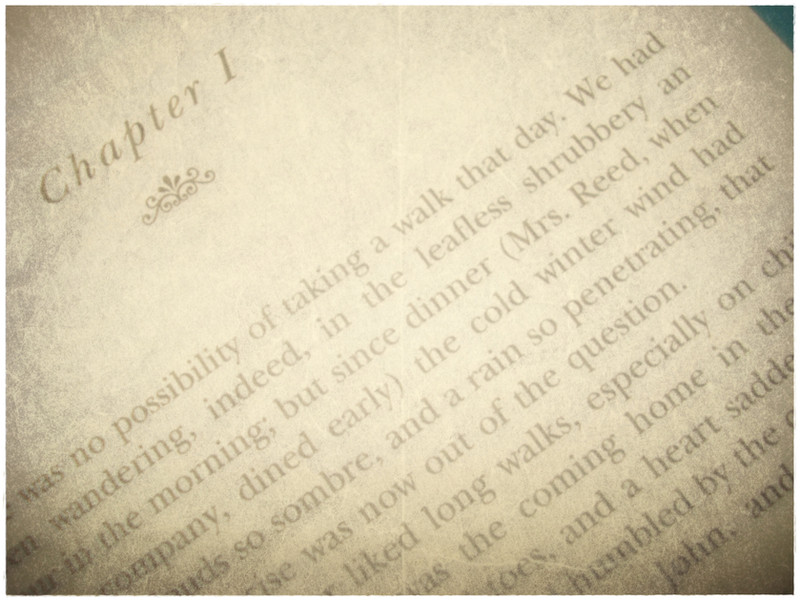 Chapter I
was no possibility of taking a walk that day. We had
wandering, indeed, in the leafless shrubbery an
in the morning; but since dinner (Mrs. Reed, when
company, dined early) the cold winter wind had
so sombre, and a rain so penetrating, that
was now out of the question.
liked long walks, especially on
was the coming home in the
toes, and a heart
humbled by the
John, and